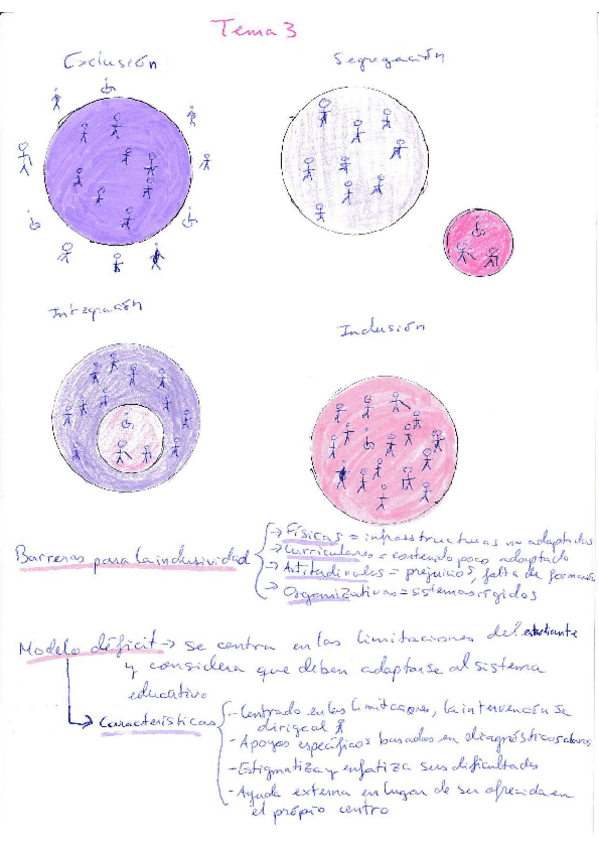 Tema 3
Exclusión
Segregación
Integración
Inclusión
Barreras para la inclusividad
→ Físicas = infraestructuras no adaptadas
→ Curriculares = contenido poco adaptado
→ Actitudinales = prejuicios, falta de formación
→ Organizativas = sistemas rígidos
Modelo déficit → se centra en las limitaciones del estudiante
y considera que deben adaptarse al sistema
educativo
→ Características
- Centrado en las limitaciones, la intervención se
dirige al
- Apoyos específicos basados en diagnósticos
- Estigmatiza y enfatiza sus dificultades
- Ayuda externa en lugar de ser ofrecida en
el propio centro